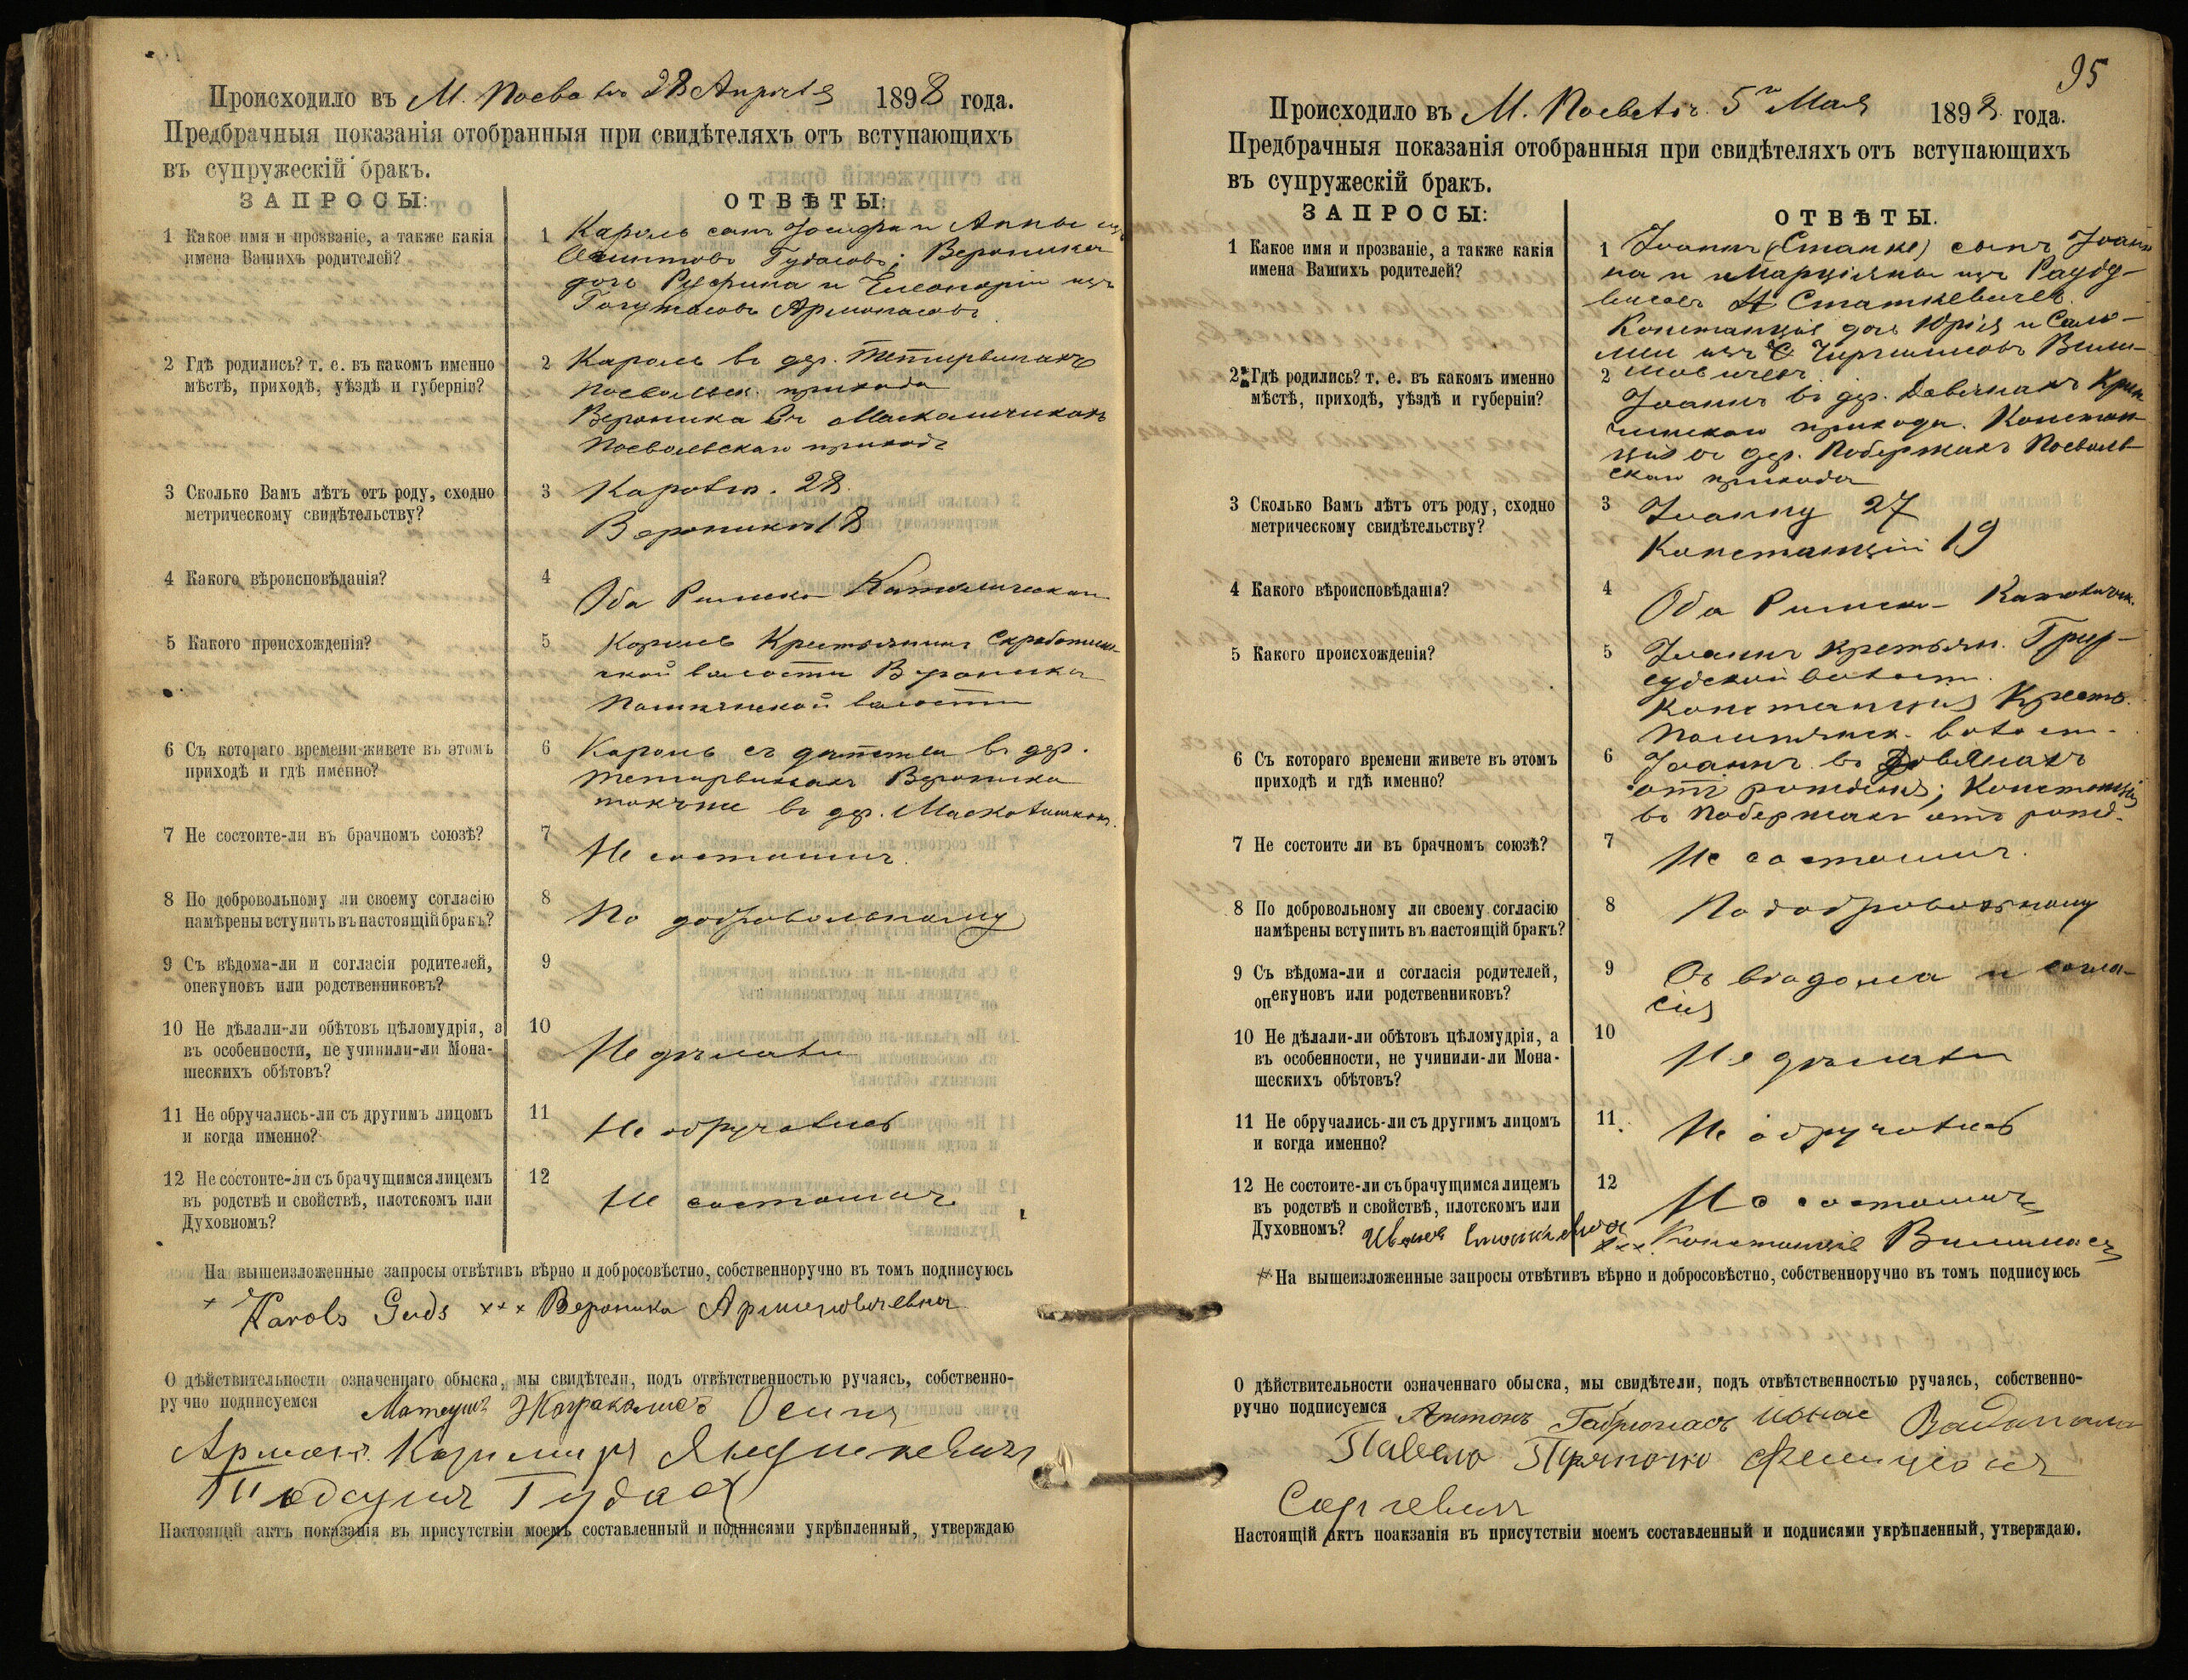 Происходило въ М. Посволѣ 28 Апрѣля 1898 года.
Предбрачныя показанія отобранныя при свидѣтеляхъ отъ вступающихъ
въ супружескій бракъ.
ЗАПРОСЫ:
ОТВѢТЫ:
1 Какое имя и прозваніе, а также какія
имена Вашихъ родителей?
1 Кароль сынъ Іосифа и Анны изъ
Гудасовъ; Вероника
дочь Руфина и Елеоноріи изъ
Армонасовъ
2 Гдѣ родились? т. е. въ какомъ именно
мѣстѣ, приходѣ, уѣздѣ и губерніи?
2 Кароль въ дер. Тетирвинахъ
Посвольск. прихода
Вероника въ
Посвольскаго прихода
3 Сколько Вамъ лѣтъ отъ роду, сходно
метрическому свидѣтельству?
3 Каролю 28.
Вероникѣ 18
4 Какого вѣроисповѣданія?
4
Оба Римско-Католическаго
5 Какого происхожденія?
5 Кароль Крестьянинъ Скробот
ской волости Вероника
волости
6 Съ котораго времени живете въ этомъ
приходѣ и гдѣ именно?
6 Кароль съ дѣтства въ дер.
Тетирвинахъ Вероника
въ дер.
7 Не состоите-ли въ брачномъ союзѣ?
7
Не состоимъ.
8 По добровольному ли своему согласію
намѣрены вступить въ настоящій бракъ?
8
По добровольному
9 Съ вѣдома-ли и согласія родителей,
опекуновъ или родственниковъ?
9
10 Не дѣлали-ли обѣтовъ цѣломудрія, а
въ особенности, не учинили-ли Мона-
шескихъ обѣтовъ?
10
Не дѣлали
11 Не обручались-ли съ другимъ лицомъ
и когда именно?
11
Не обручались
12 Не состоите-ли съ брачущимся лицемъ
въ родствѣ и свойствѣ, плотскомъ или
Духовномъ?
12
Не состоимъ.
На вышеизложенные запросы отвѣтивъ вѣрно и добросовѣстно, собственноручно въ томъ подписуюсь
Karols Guds ××× Вероника
О дѣйствительности означеннаго обыска, мы свидѣтели, подъ отвѣтственностью ручаясь, собственно-
ручно подписуемся Матеушъ Осипъ
Армонъ. Казимиръ Янушкевичъ
Гудасъ
Настоящій актъ показанія въ присутствіи моемъ составленный и подписями укрѣпленный, утверждаю
95
Происходило въ М. Посволѣ 5 Мая 1898 года.
Предбрачныя показанія отобранныя при свидѣтеляхъ отъ вступающихъ
въ супружескій бракъ.
ЗАПРОСЫ:
ОТВѢТЫ.
1 Какое имя и прозваніе, а также какія
имена Вашихъ родителей?
1 Іоаннъ (Станке) сынъ Іоан
на и Марціяны изъ
Статкевичевъ.
Констанція дочь Юрія и Сало-
меи изъ
2 Гдѣ родились? т. е. въ какомъ именно
мѣстѣ, приходѣ, уѣздѣ и губерніи?
2
Іоаннъ въ дер. Довянахъ Крин
чинскаго прихода. Констан
ція въ дер. Побержахъ Посволь-
скаго прихода
3 Сколько Вамъ лѣтъ отъ роду, сходно
метрическому свидѣтельству?
3 Іоанну 27
Констанціи 19
4 Какого вѣроисповѣданія?
4
Оба Римско-Католическ.
5 Какого происхожденія?
5 Іоаннъ крестьян.
волости.
Констанція Крест.
волост.
6 Съ котораго времени живете въ этомъ
приходѣ и гдѣ именно?
6 Іоаннъ въ Довянахъ
отъ рожденія; Констанція
въ Побержахъ отъ рожд.
7 Не состоите ли въ брачномъ союзѣ?
7
Не состоимъ.
8 По добровольному ли своему согласію
намѣрены вступить въ настоящій бракъ?
8
По добровольному
9 Съ вѣдома-ли и согласія родителей,
опекуновъ или родственниковъ?
9
Съ вѣдома и согла-
сія
10 Не дѣлали-ли обѣтовъ цѣломудрія, а
въ особенности, не учинили-ли Мона-
шескихъ обѣтовъ?
10
Не дѣлали
11 Не обручались-ли съ другимъ лицомъ
и когда именно?
11.
Не обручались
12 Не состоите-ли съ брачущимся лицемъ
въ родствѣ и свойствѣ, плотскомъ или
Духовномъ?
12
Не состоимъ
××× Констанція
На вышеизложенные запросы отвѣтивъ вѣрно и добросовѣстно, собственноручно въ томъ подписуюсь
О дѣйствительности означеннаго обыска, мы свидѣтели, подъ отвѣтственностью ручаясь, собственно-
ручно подписуемся Антонъ Габрюнасъ
Фелиціонъ
Настоящій актъ поакзанія въ присутствіи моемъ составленный и подписями укрѣпленный, утверждаю.